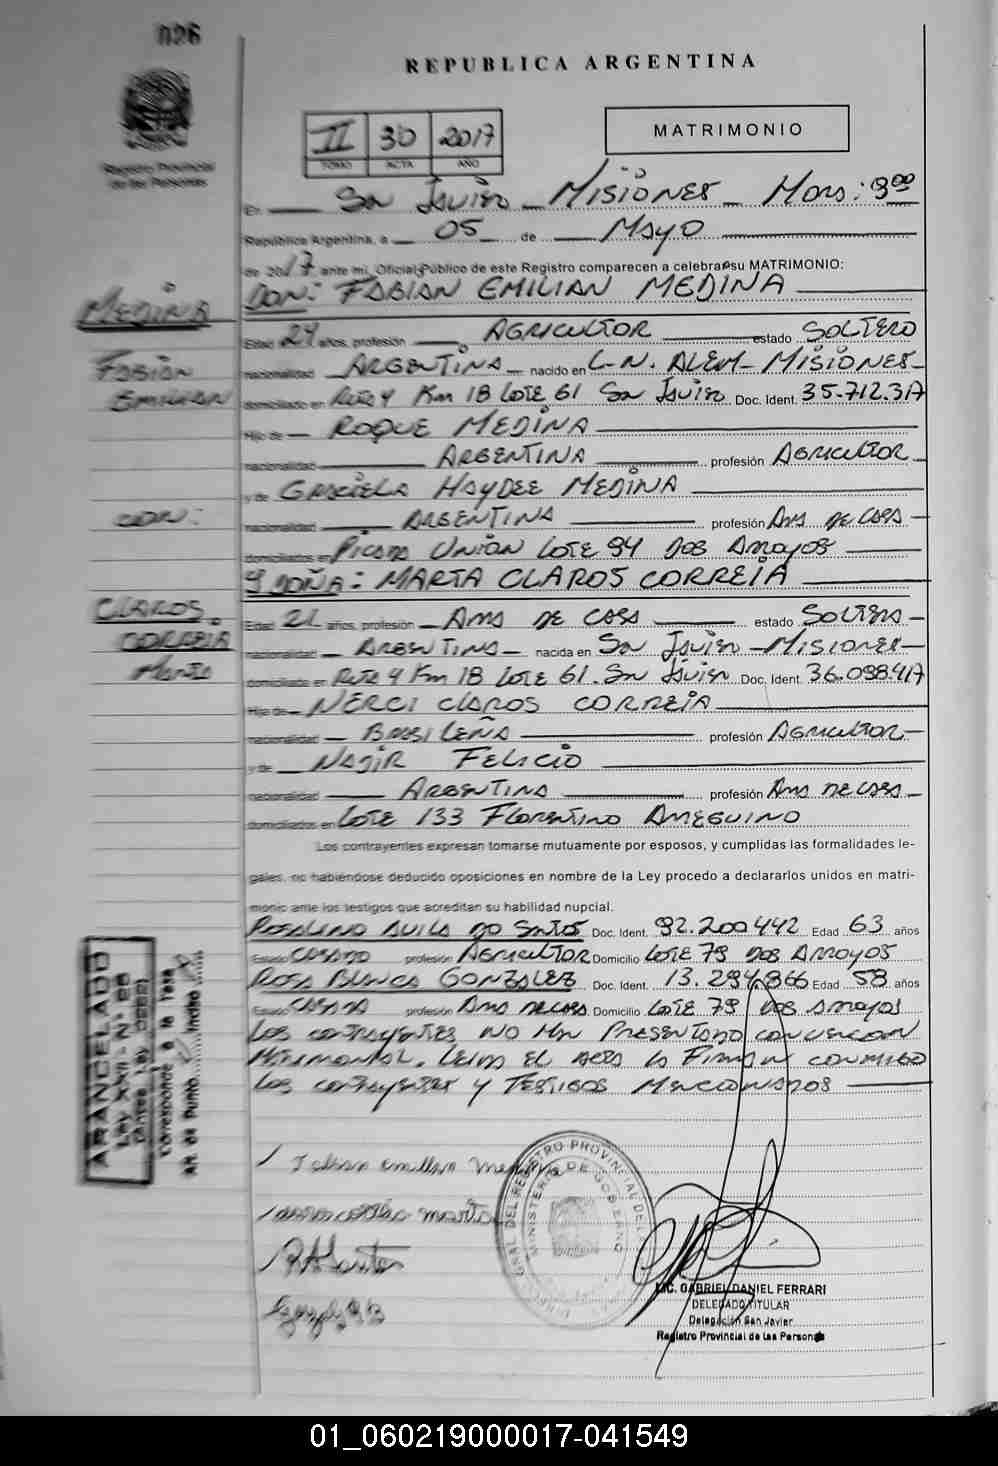 026
REPUBLICA ARGENTINA
Registro Provincial
de las Personas
II 30 2017
TOMO ACTA AÑO
MATRIMONIO
En San Javier - MISIONES - Hora: 9:00
República Argentina, a 05 de MAYO
de 2017 ante mí, Oficial Público de este Registro comparecen a celebrar su MATRIMONIO:
MEDINA
FABIAN
EMILIAN
CON:
CLAROS
CORREIA
MARTA
DON: FABIAN EMILIAN MEDINA
Edad 24 años, profesión AGRICULTOR estado SOLTERO
nacionalidad ARGENTINA nacido en L-N. ALEM - MISIONES -
domiciliado en Ruta 4 Km 18 LOTE 61 San Javier Doc. Ident. 35.712.317
Hijo de ROQUE MEDINA
nacionalidad ARGENTINA profesión AGRICULTOR
y de GRACIELA HAYDEE MEDINA
nacionalidad ARGENTINA profesión AMA DE CASA
domiciliados en PICADA UNION LOTE 94 DOS ARROYOS
Y DOÑA: MARTA CLAROS CORREIA
Edad 21 años, profesión AMA DE CASA estado SOLTERA
nacionalidad ARGENTINA nacida en San Javier - MISIONES -
domiciliada en Ruta 4 Km 18 LOTE 61. San Javier Doc. Ident. 36.098.417
Hija de NERCI CLAROS CORREIA
nacionalidad BRASILEÑA profesión AGRICULTOR
y de NADIR FELICIO
nacionalidad ARGENTINA profesión AMA DE CASA
domiciliados en LOTE 133 FLORENTINO AMEGUINO
Los contrayentes expresan tomarse mutuamente por esposos, y cumplidas las formalidades le-
gales, no habiéndose deducido oposiciones en nombre de la Ley procedo a declararlos unidos en matri-
monio ante los testigos que acreditan su habilidad nupcial.
ROSALINO AVILA DO SANTOS Doc. Ident. 92.200.442 Edad 63 años
Estado CASADO profesión AGRICULTOR Domicilio LOTE 79 DOS ARROYOS
ROSA BLANCA GONZALEZ Doc. Ident. 13.294.866 Edad 58 años
Estado CASADA profesión AMA DE CASA Domicilio LOTE 79 DOS ARROYOS
LOS CONTRAYENTES NO HAN PRESENTADO CONVENCION
MATRIMONIAL. LEIDA EL ACTA LA FIRMAN CONMIGO
LOS CONTRAYENTES Y TESTIGOS MENCIONADOS
ARANCELADO
Ley XXII - N° 25
Corresponde a la Tasa
Art. de Punto Inciso
Fabian emilian Medina
marta
Gonzalez R B
REGISTRO PROVINCIAL DE LAS
MINISTERIO DE GOBIERNO
LIC. GABRIEL DANIEL FERRARI
DELEGADO TITULAR
Delegación San Javier
Registro Provincial de las Personas
01_060219000017-041549